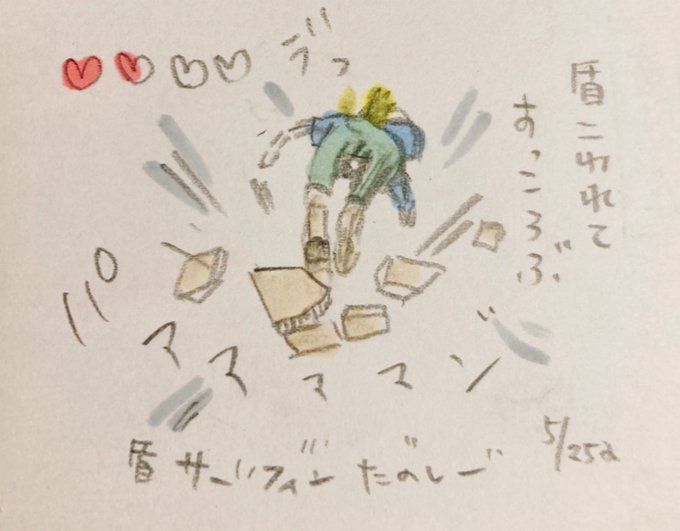 デッ
盾こわれて
すっころぶ
パママママン
盾サーフィンたのしー
5/25